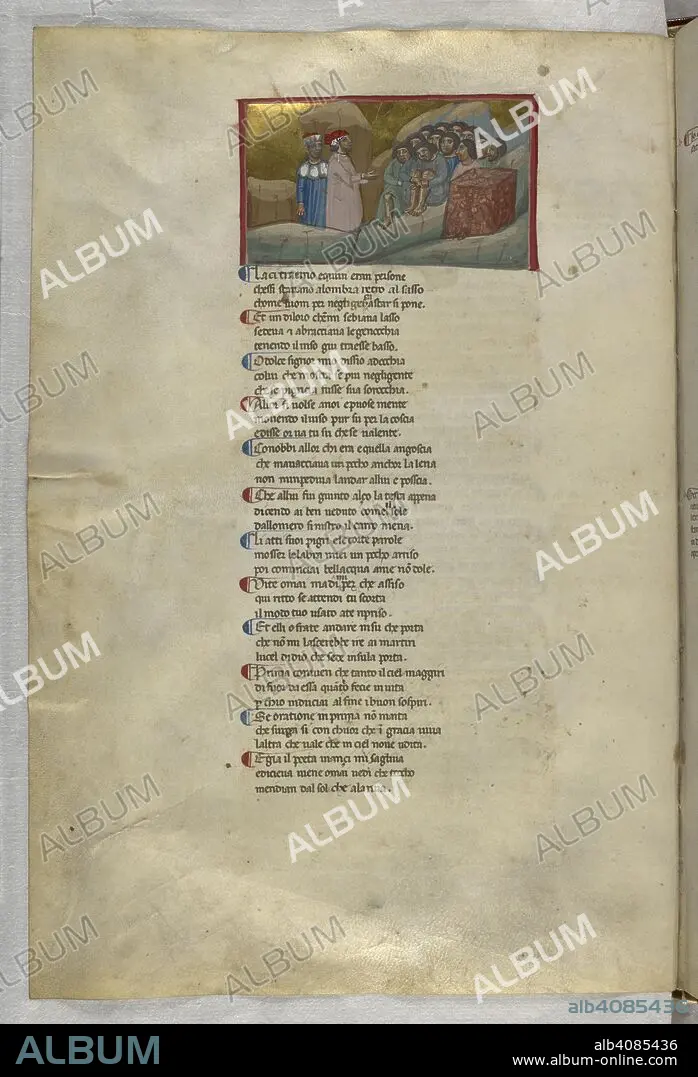 La ci traemo e quiui eran persone
chessi stauano alombra retro al sasso
chome huom per negligença star si pone.
Et un diloro che mi sebiaua lasso
sedeua e abracciaua le genocchia
tenendo il uiso giu traesse basso.
O dolce signor mio dissio adocchia
colui che mostra se piu negligente
che se pigricia fusse sua sorocchia.
Allor si uolse anoi e puose mente
mouendo il uiso pur su per la coscia
e disse or ua tu su che se ualente.
Conobbi allor chi era e quella angoscia
che mauacciaua un pocho anchor la lena
non mimpediua landar allui e poscia.
Che allui fui giunto alço la testa appena
dicendo ai ben ueduto come il sole
dallomero sinistro il carro mena.
Li atti suoi pigri e le corte parole
mosser le labra miei un pocho arriso
poi cominciai bellacqua ame nõ dole.
Di te omai ma dimi perche assiso
qui ritto se attendi tu scorta
il modo tuo usato ate ripriso.
Et elli o frate andare in su che porta
che nõ mi lascerebbe ire ai martiri
lucel didio che sede insula porta.
Prima conuien che tanto il ciel maggiri
di fuor da essa quãto fecie in uita
p chio induciai al fine i buon sospiri.
Se oratione in prima nõ maita
che surga su con chuor che ĩ gracia uiua
laltra che uale che in ciel none udita.
E gia il poeta inançi mi saghua
e diceua uiene omai uedi che toccho
meridian dal sol che ala riua.
ALBUM
alb4085436
ALBUM
alb4085436
www.album-online.com